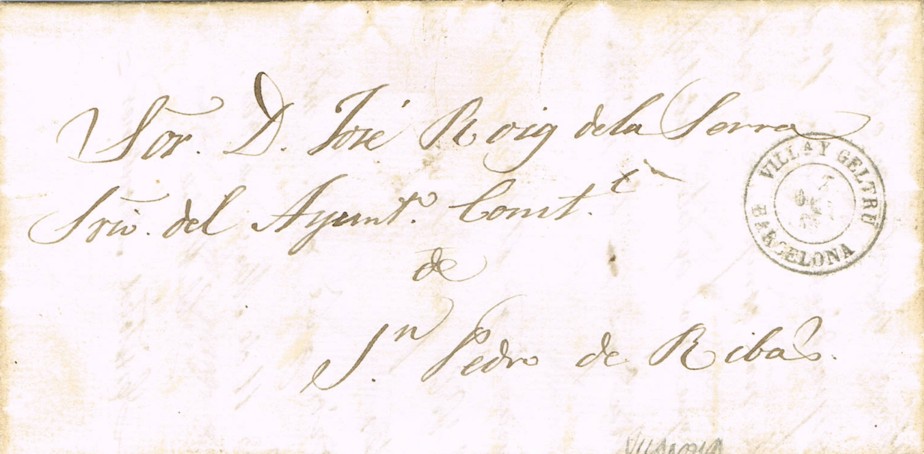 Sor. D. José Roig dela Serra
Srio. del Ayunt.º Const.l
de
S.n Pedro de Ribas.
VILLA Y GELTRU
BARCELONA